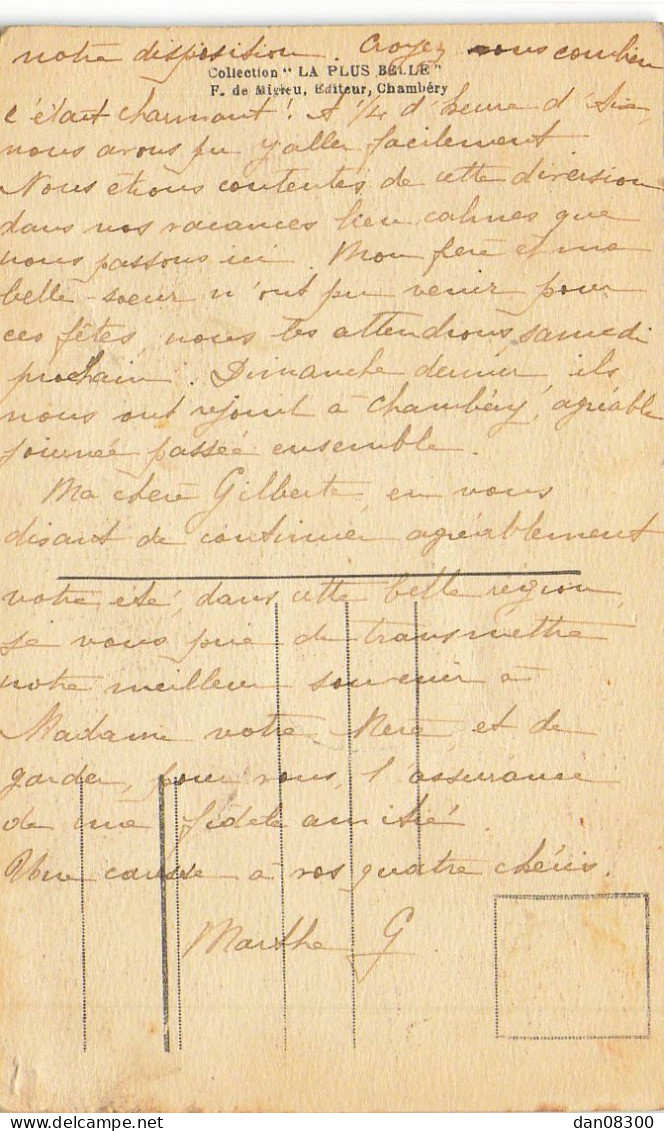 notre disposition. Croyez vous combien
Collection "LA PLUS BELLE"
F. de Migieu, Editeur, Chambéry
c'était charmant! A 1/4 d'heure d'Aix,
nous avons pu y aller facilement.
Nous étions contentes de cette diversion
dans nos vacances bien calmes que
nous passons ici. Mon frère et ma
belle-soeur n'ont pu venir pour
ces fêtes, nous les attendrons samedi
prochain. Dimanche dernier, ils
nous ont rejoint à Chambéry, agréable
journée passée ensemble.
Ma chère Gilberte, en vous
disant de continuer agréablement
votre été, dans cette belle région,
je vous prie de transmettre
notre meilleur souvenir à
Madame votre Mère, et de
garder, pour vous, l'assurance
de ma fidèle amitié.
Une caresse à vos quatre chéris.
Marthe G
dan08300